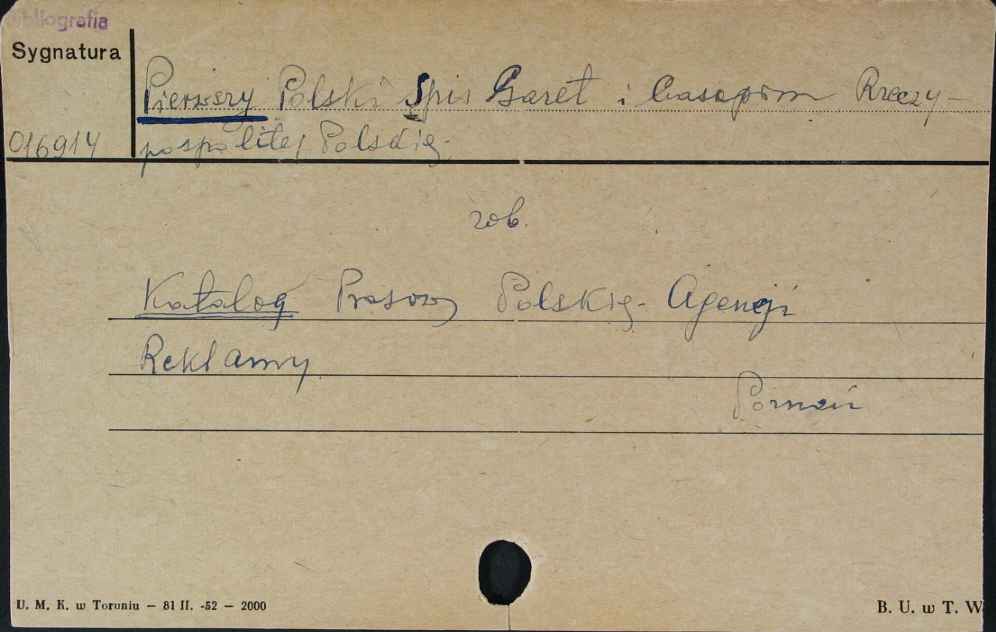 Bibliografia
Sygnatura
Pierwszy Polski Spis Gazet i Czasopism Rzeczy-
016914
pospolitej Polskiej.
zob.
Katalog Prasowy Polskiej Agencji
Reklamy
Poznań
U. M. K. w Toruniu — 81 II. -52 — 2000
B. U. w T. W